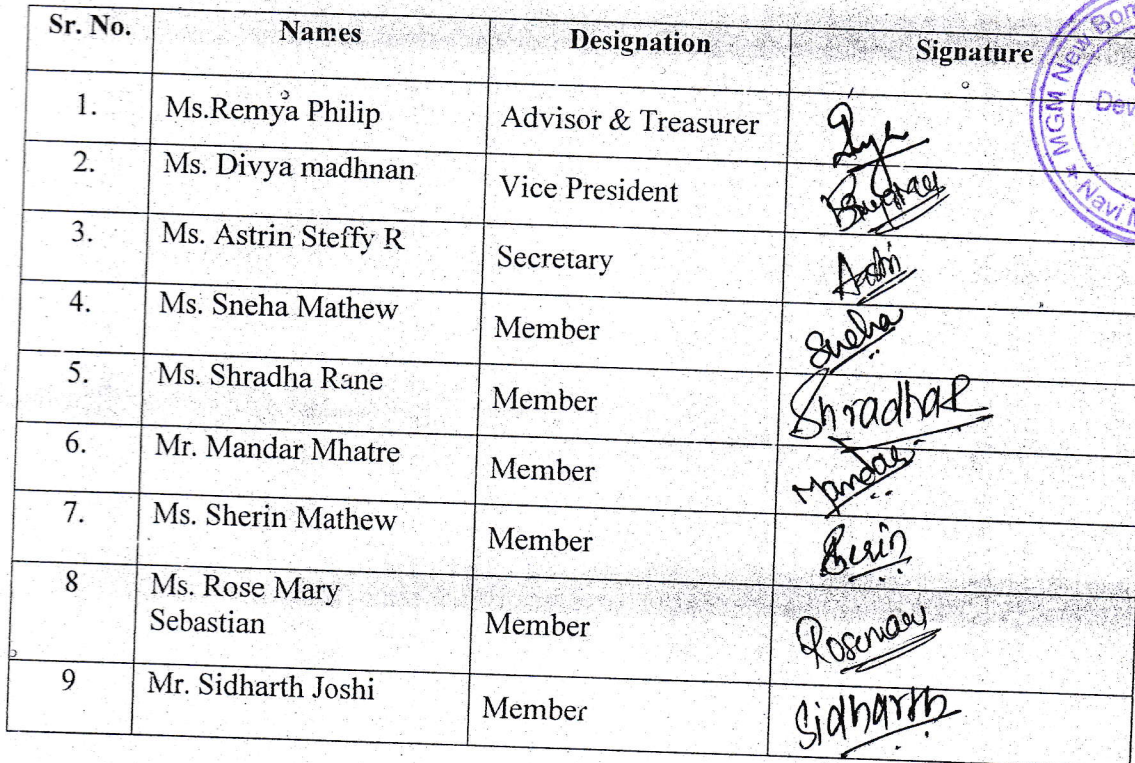 Sr. No. Names Designation Signature
1. Ms.Remya Philip Advisor & Treasurer
2. Ms. Divya madhnan Vice President
3. Ms. Astrin Steffy R Secretary
4. Ms. Sneha Mathew Member Sneha
5. Ms. Shradha Rane Member ShradhaR
6. Mr. Mandar Mhatre Member Mandar
7. Ms. Sherin Mathew Member
8 Ms. Rose Mary
Sebastian Member Rosemary
9 Mr. Sidharth Joshi Member Sidharth
MGM New Bom
Dev
Navi